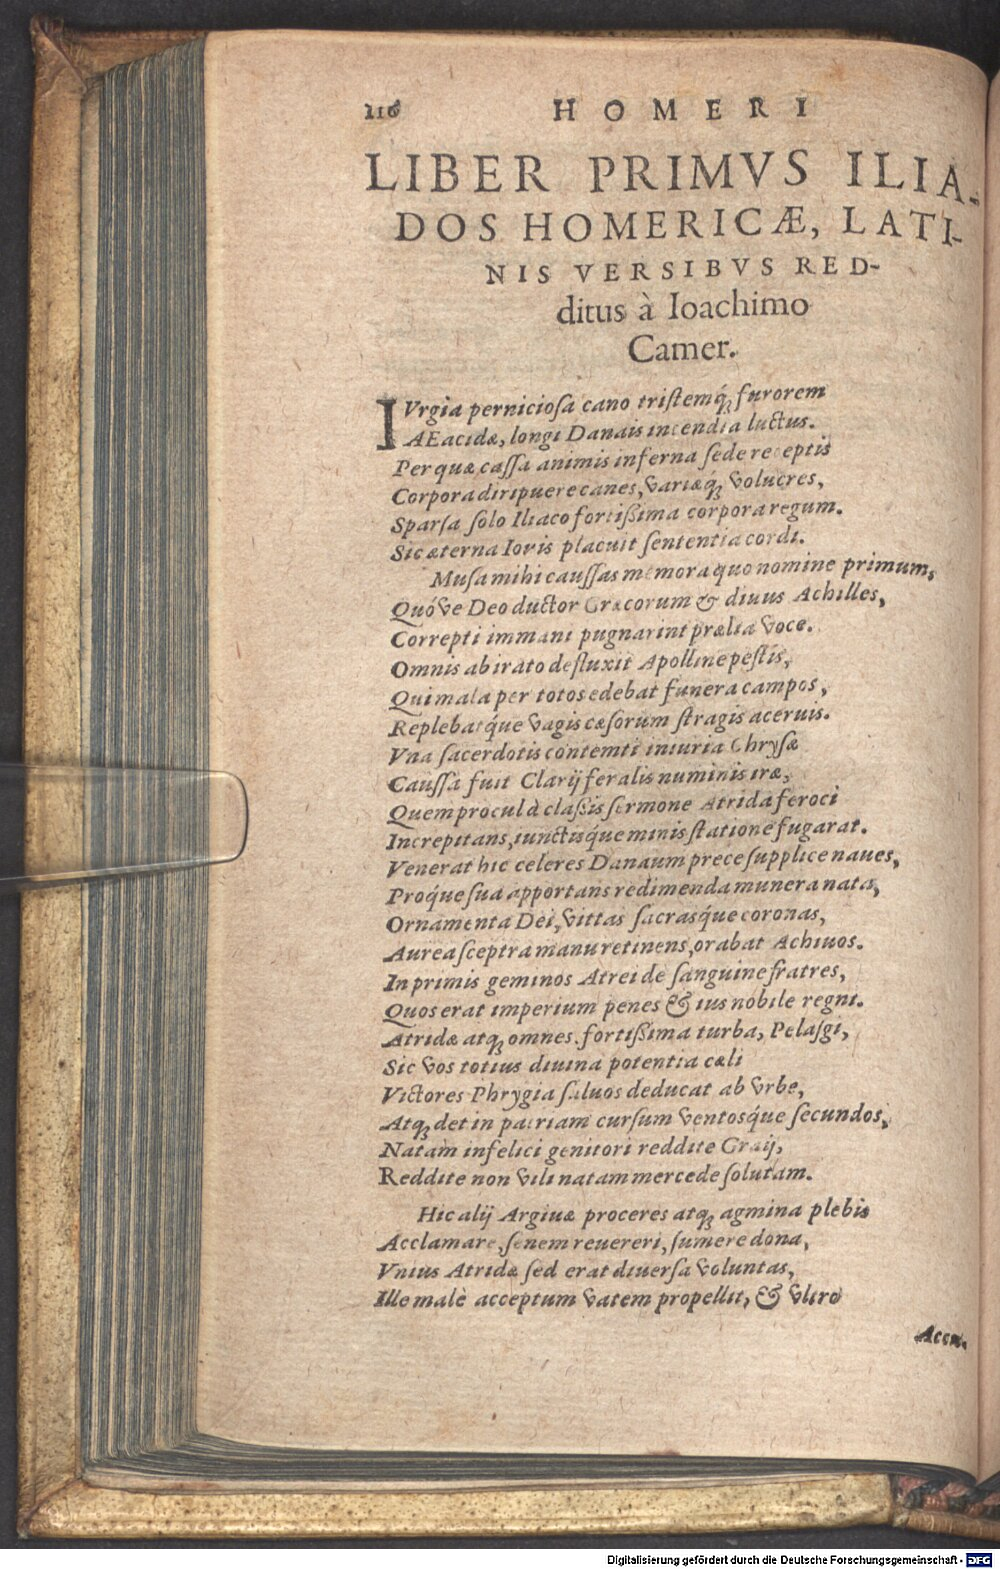 116 HOMERI
LIBER PRIMVS ILIA-
DOS HOMERICÆ, LATI-
NIS VERSIBVS RED-
ditus à Ioachimo
Camer.
IVrgia perniciosa cano tristemq́ꝫ furorem
AEacidæ, longi Danais incendia luctus.
Per quæ cassa animis inferna sede receptis
Corpora diripuere canes, variæq́ꝫ volucres,
Sparsa solo Iliaco fortißima corpora regum.
Sic æterna Iovis placuit sententia cordi.
Musa mihi caussas memora quo nomine primum,
Quóve Deo ductor Græcorum & diuus Achilles,
Correpti immani pugnarint prælia voce.
Omnis ab irato defluxit Apolline pestis,
Qui mala per totos edebat funera campos,
Replebatq́ue vagis cæsorum stragis aceruis.
Vna sacerdotis contemti iniuria Chrysæ
Caussa fuit Clarij feralis numinis iræ,
Quem procul à claßis sermone Atrida feroci
Increpitans, iunctisq́ue minis statione fugarat.
Venerat hic celeres Danaum prece supplice naues,
Proq́ue sua apportans redimenda munera nata,
Ornamenta Dei, vittas sacrasq́ue coronas,
Aurea sceptra manu retinens, orabat Achiuos.
In primis geminos Atrei de sanguine fratres,
Quos erat imperium penes & ius nobile regni.
Atridæ atqꝫ omnes, fortißima turba, Pelasgi,
Sic vos totius diuina potentia cæli
Victores Phrygia saluos deducat ab vrbe,
Atqꝫ det in patriam cursum ventosq́ue secundos,
Natam infelici genitori reddite Graij,
Reddite non vili natam mercede solutam.
Hic alij Argiuæ proceres atqꝫ agmina plebis
Acclamare, senem reuereri, sumere dona,
Vnius Atridæ sed erat diuersa voluntas,
Ille malè acceptum vatem propellit, & vltro
Accu.
Digitalisierung gefördert durch die Deutsche Forschungsgemeinschaft - DFG